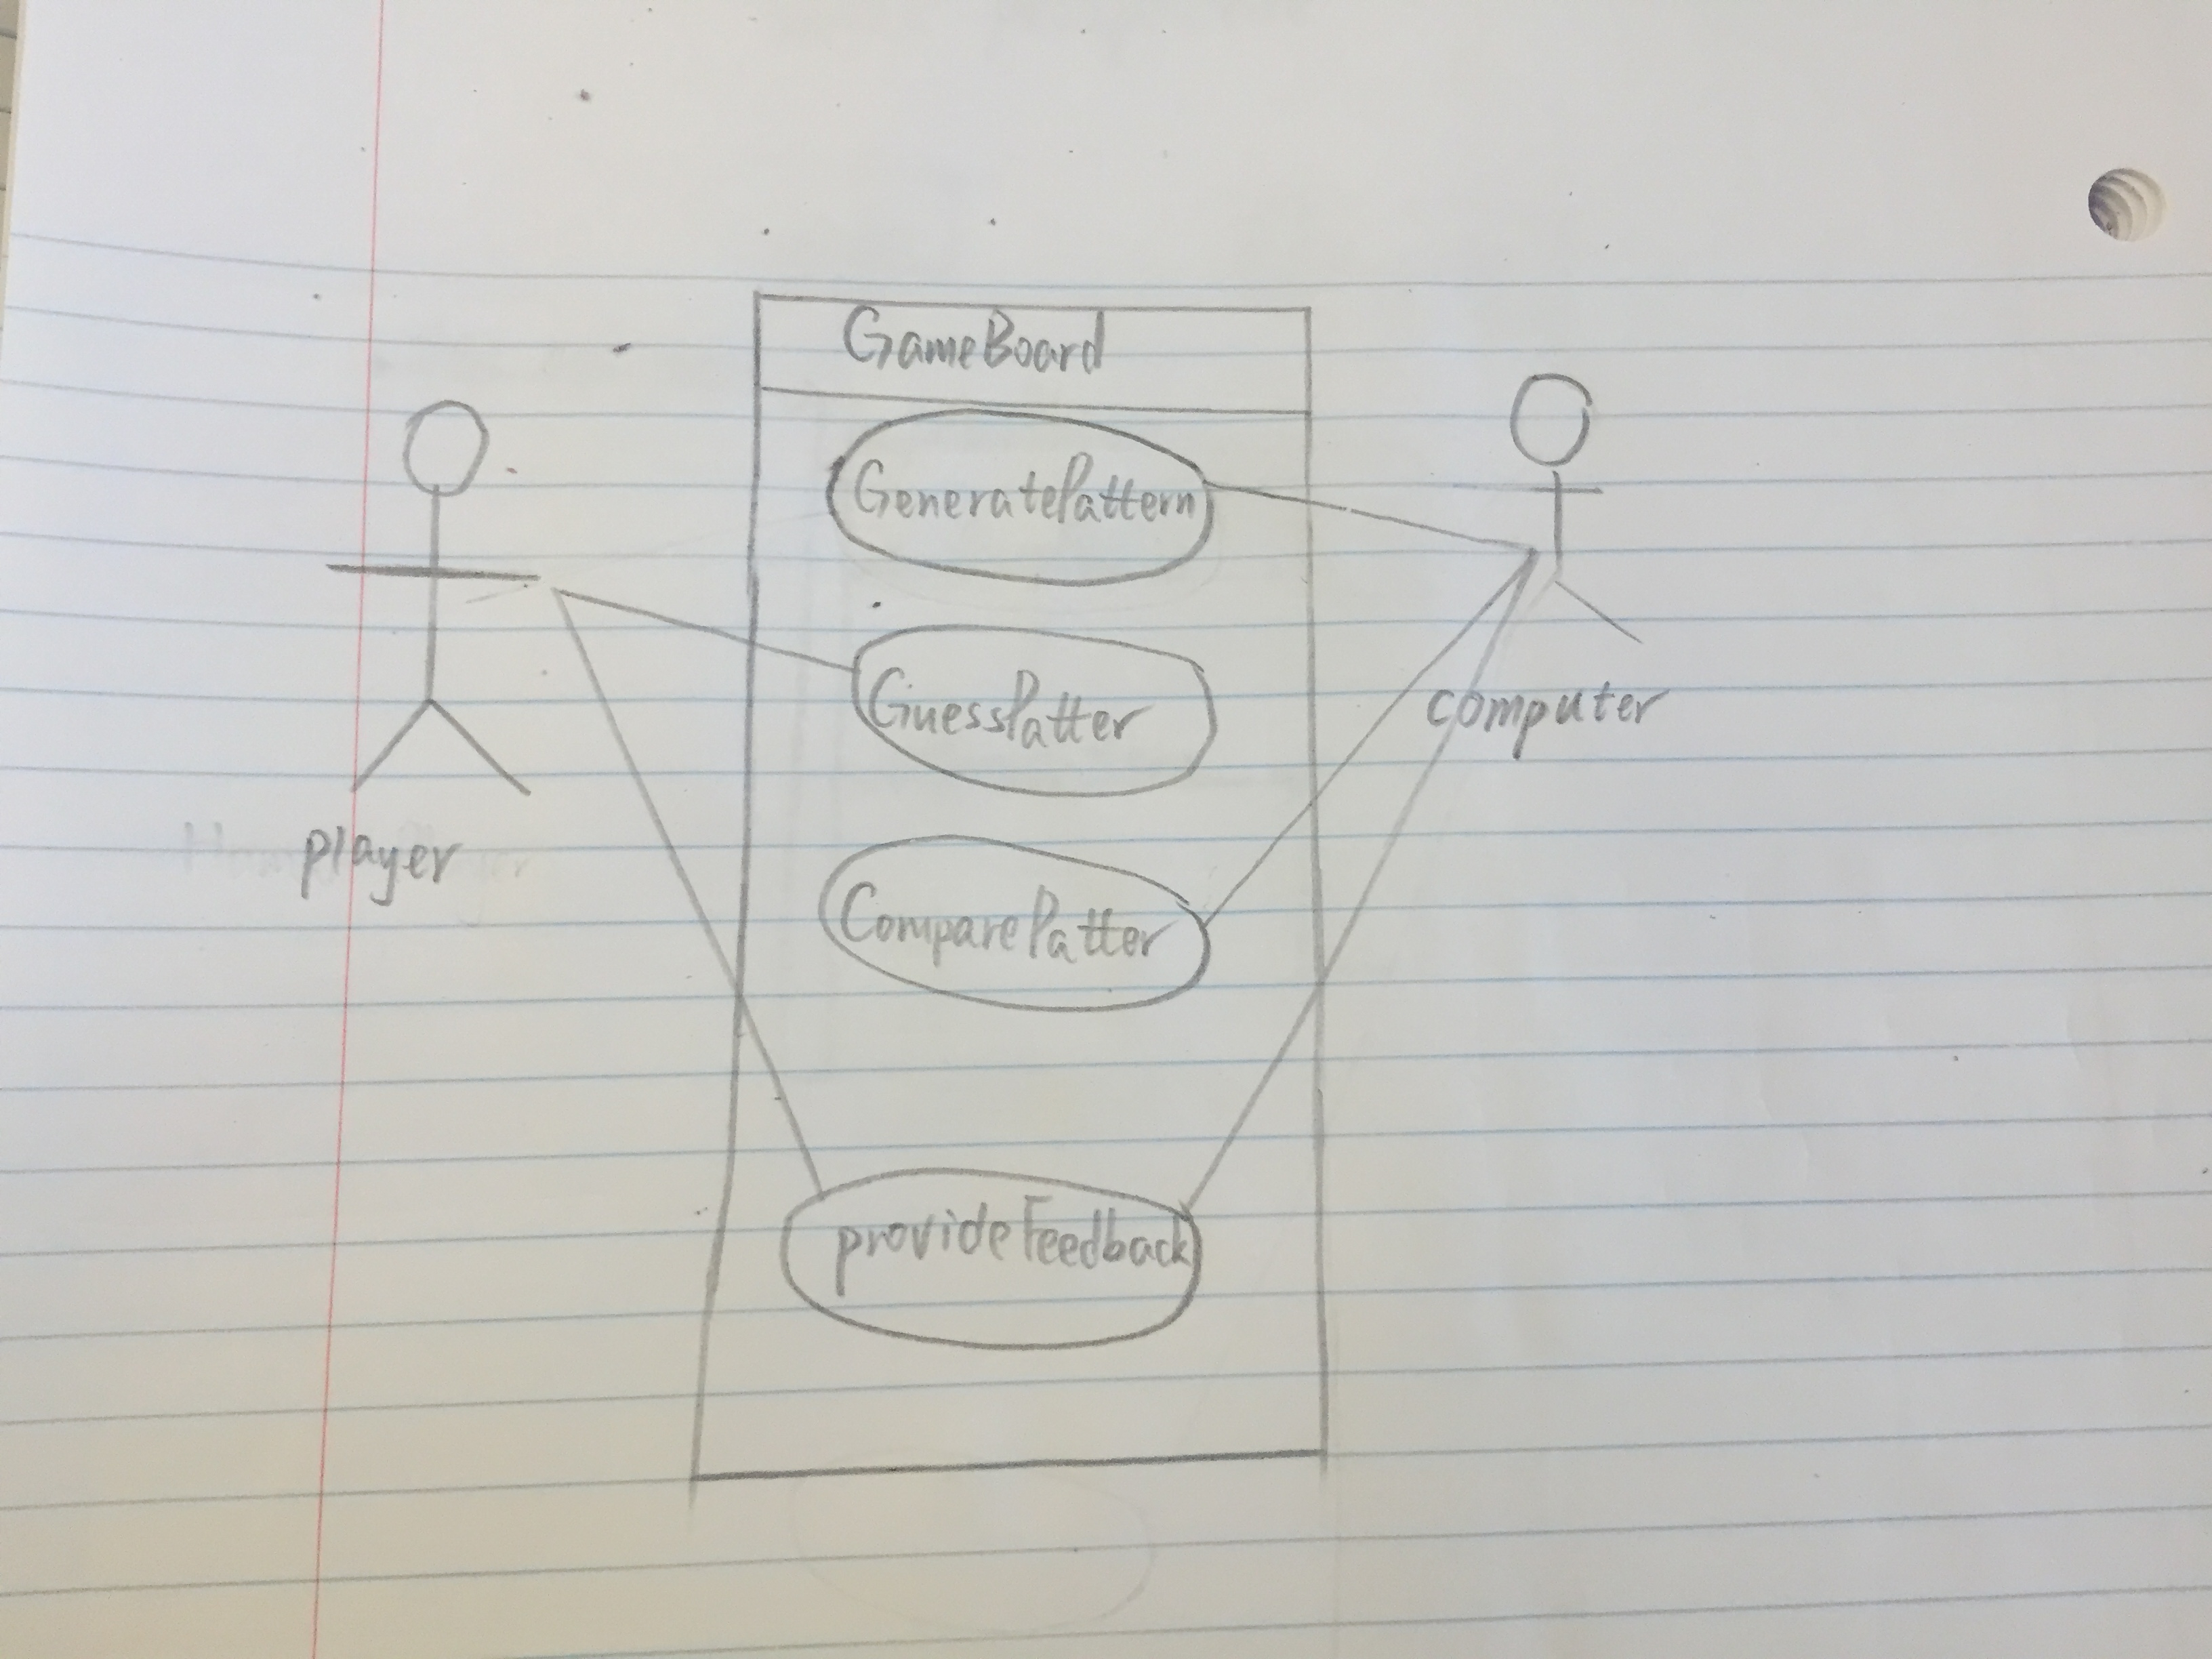 GameBoard
GeneratePattern
GuessPatter
ComparePatter
provideFeedback
player
computer